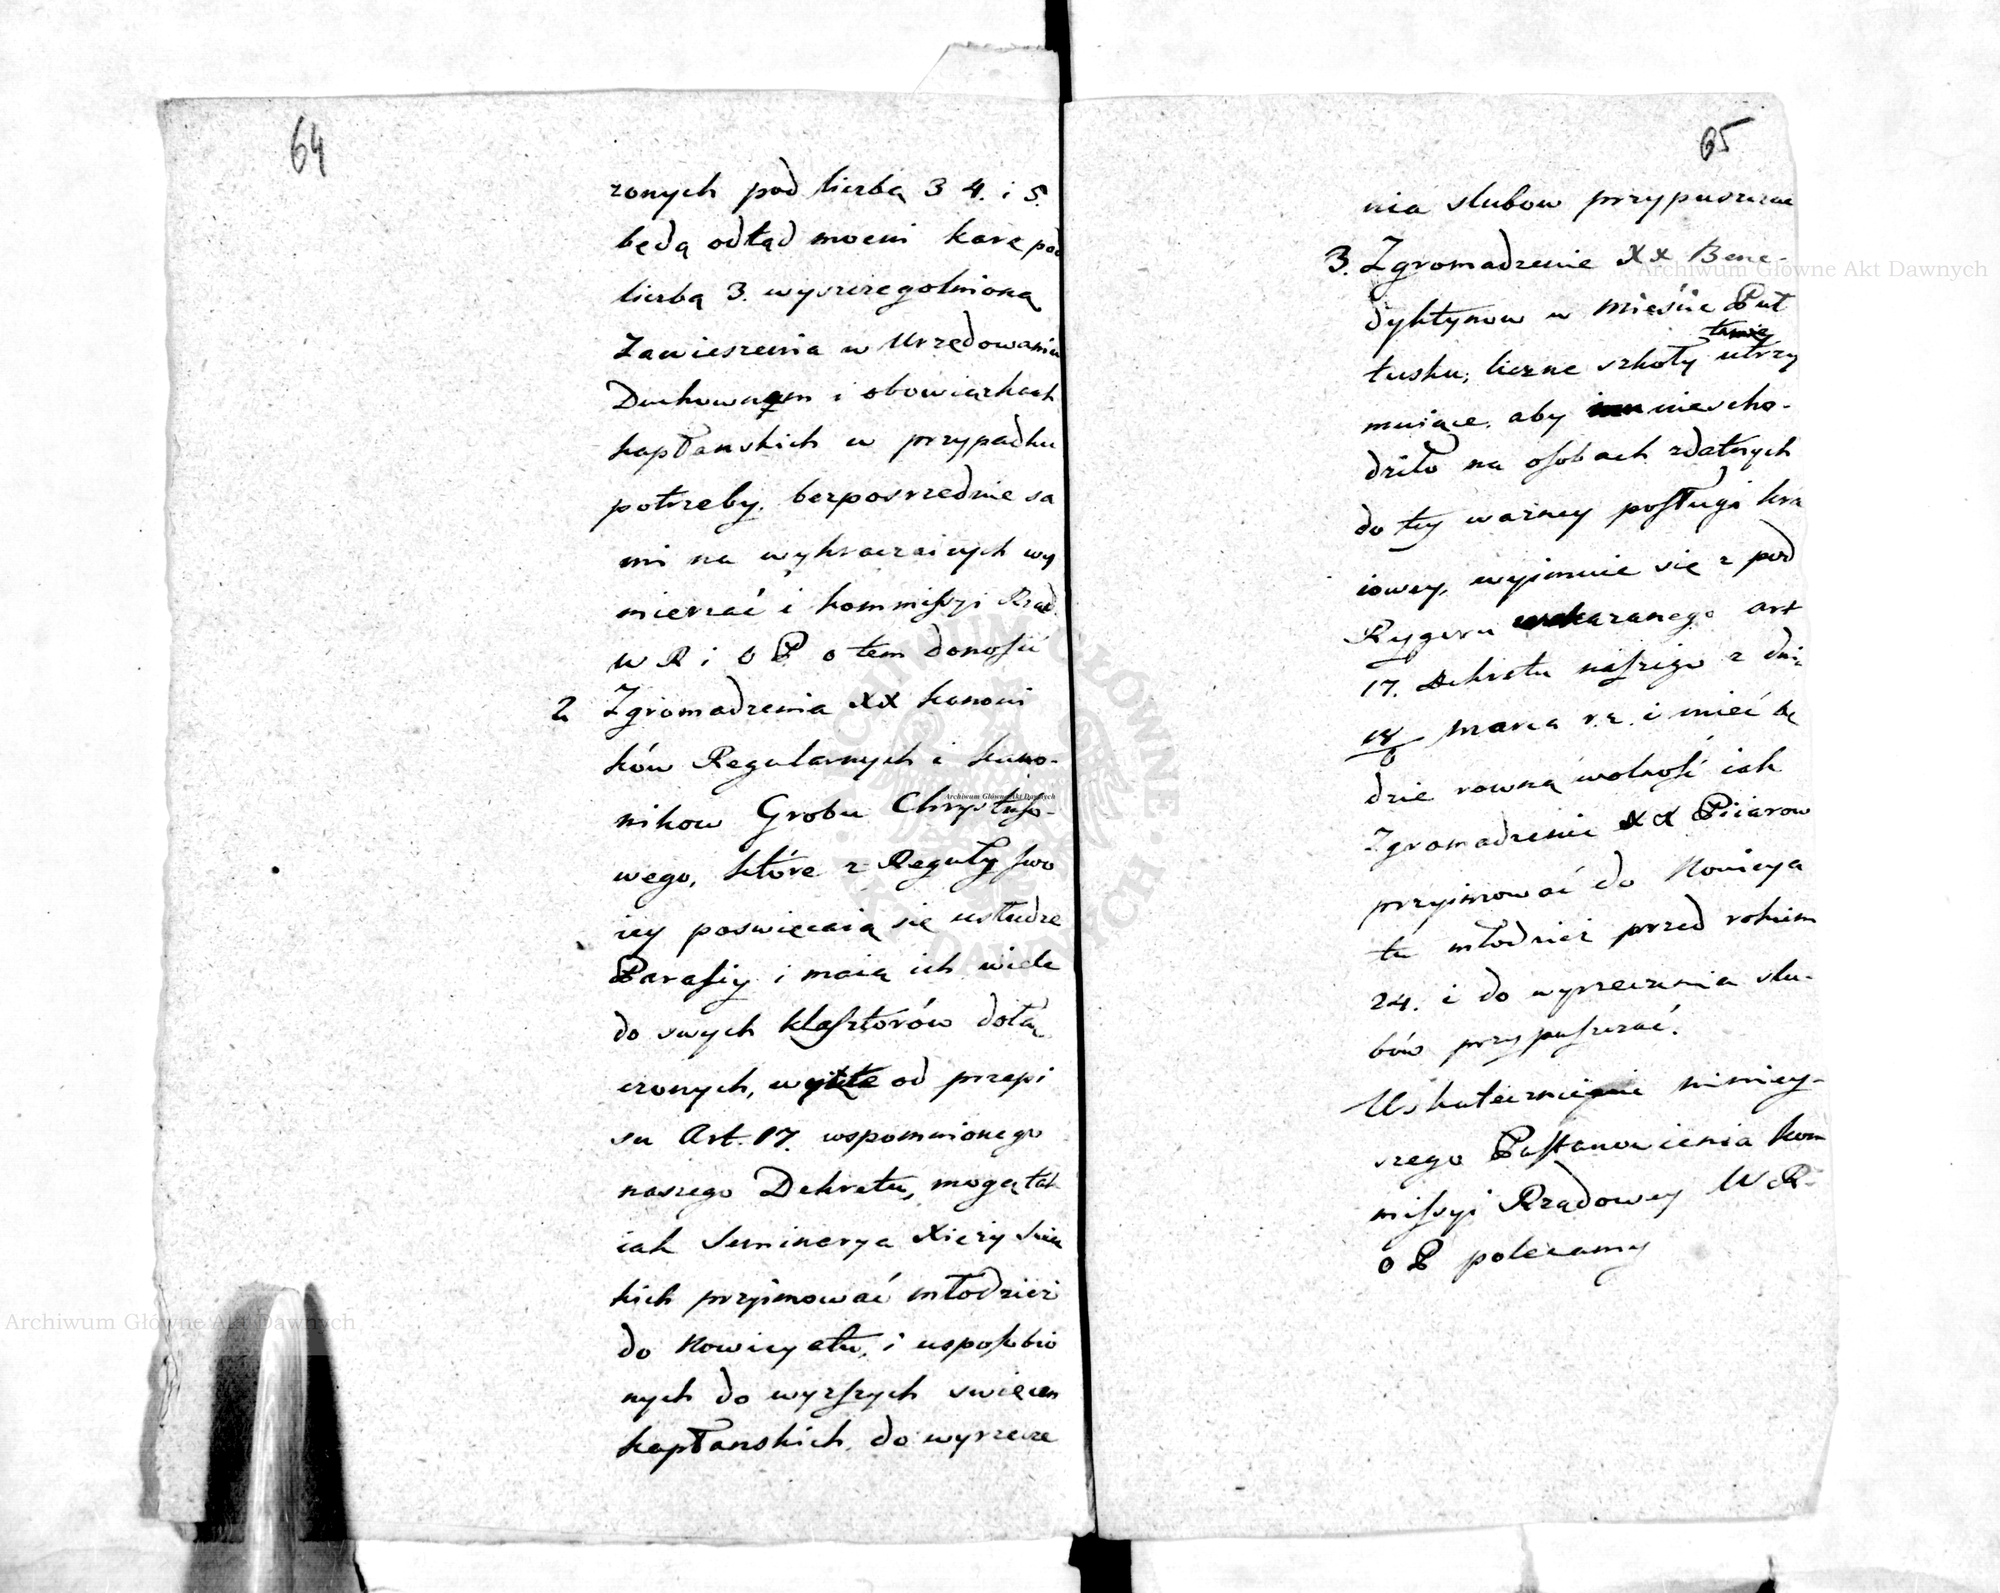 64
zonych pod liczbą 3 4. i 5.
będą odtąd mocni karę pod
liczbą 3. wyszczegolnioną
Zawieszenia w Urzędowaniu
Duchownym i obowiązkach
kapłanskich w przypadku
potrzeby, bezposrzednie sa
mi na wykraczaiących wy
mierzać i kommissyi Rząd.
W R i O P o tem donosić
2 Zgromadzenia XX kanoni
ków Regularnych i kano-
nikow Grobu Chrystuso-
wego, które z Reguły swo
iey poswięcaią się usłudze
Parafiy i maią ich wiele
do swych klasztorów dołą
czonych, wyięte od przepi
su Art. 17. wspomnionego
naszego Dekretu, mogą tak
iak Seminarya Xięży Swiec
kich przyimować młodzież
do Nowicyatu, i usposobio
nych do wyższych swięcen
kapłanskich, do wyrzecze
65
nia slubow przypuszczac
3. Zgromadzenie XX Bene-
dyktynow w Mieście Puł
tusku, liczne szkoły utrzy
muiące, aby niescho-
dziło na osobach zdatnych
do tey wazney posługi kra
iowey, wyimuie się z pod
Rygoru wskazanego art
17. Dekretu naszego z dnia
18/6 marca r.z. i mieć bę
dzie rowną wolność iak
Zgromadzenie XX Piiarow
przyimować do Nowicya
tu młodzież przed rokiem
24. i do wyrzeczenia slu-
bów przypuszczać.
Uskutecznienie niniey-
szego Postanowienia kom
missyi Rządowey W R.
O P polecamy
Archiwum Główne Akt Dawnych
Archiwum Główne Akt Dawnych
Archiwum Główne Akt Dawnych